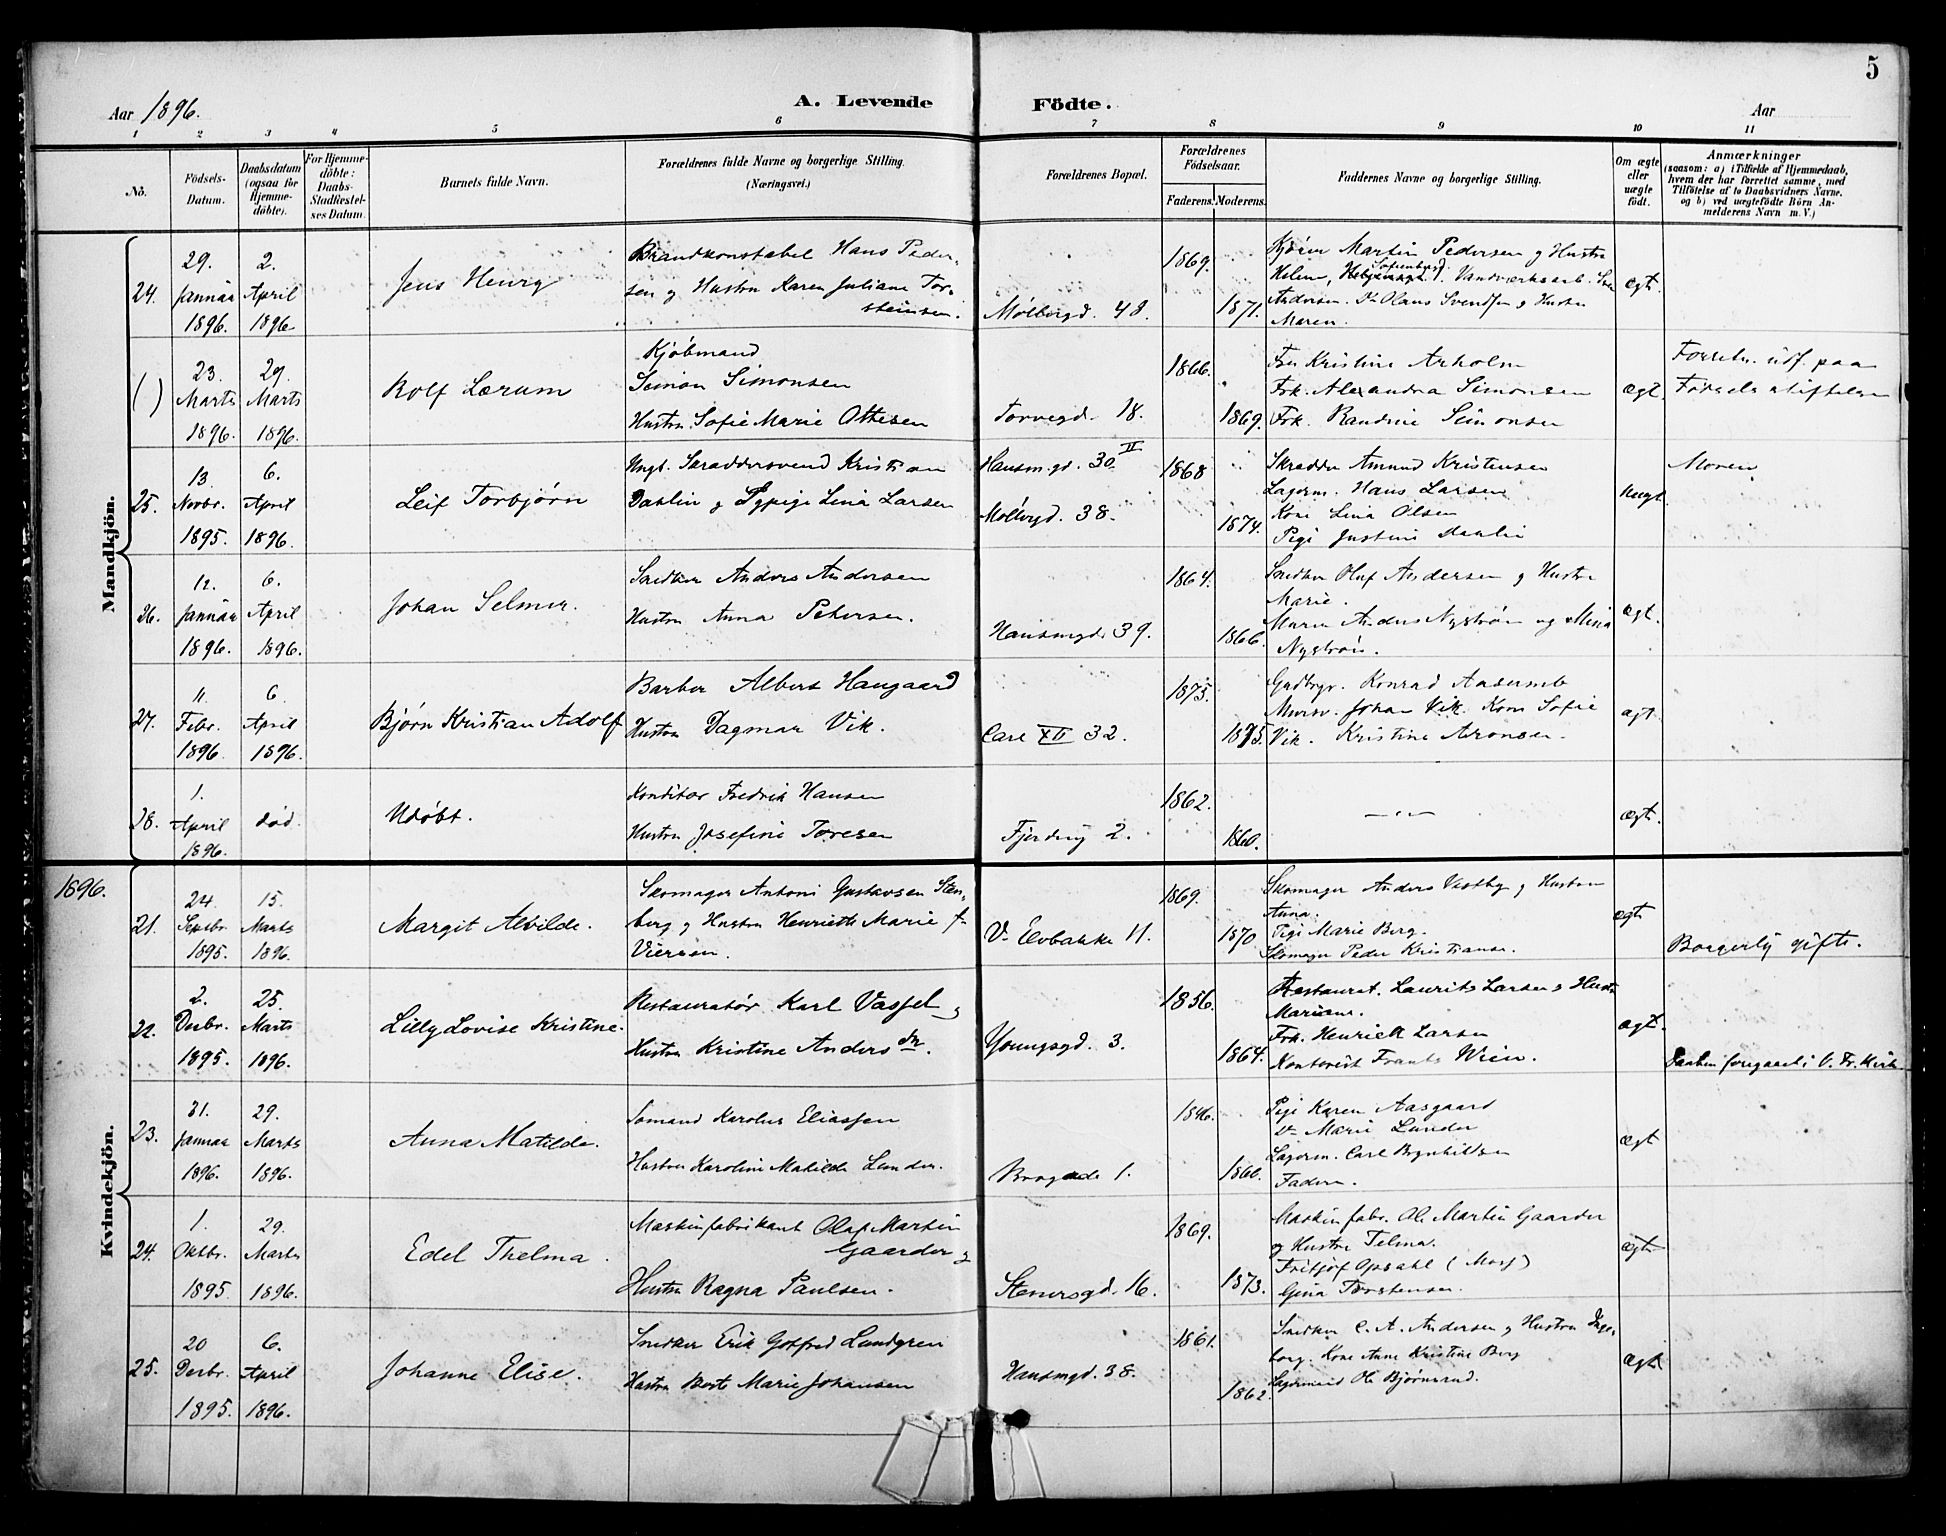 5
Aar 1896.
A. Levende Födte.
Aar
1 2 3 4 5 6 7 8 9 10 11
No.
Födsels-Datum.
Daabsdatum (ogsaa for Hjemme-döbte).
For Hjemme-döbte: Daabs-Stadfæstel-ses Datum.
Barnets fulde Navn.
Forældrenes fulde Navne og borgerlige Stilling.
(Næringsvei.)
Forældrenes Bopæl.
Forældrenes Födselsaar.
Faderens. Moderens.
Faddernes Navne og borgerlige Stilling.
Om ægte eller uægte födt.
Anmærkninger
(saasom: a) i Tilfælde af Hjemmedaab, hvem der har forrettet samme, med Tilföielse af to Daabsvidners Navne, og b) ved uægtefödte Börn Anmelderens Navn m. V.)
Mandkjön.
24. 29. Januar 1896. 2. April 1896.
Jens Henry
Brandkonstabel Hans Peder-
sen og Hustru Karen Juliane Tor-
steinsen.
Møllergd. 48.
1869. 1871.
Kjører Martin Pedersen og Hustru
Helene, Sofienberg. Vandværksarb.
Andersen. Olaus Svendsen og Hustru
Maren.
ægt.
( ) 23. Marts 1896. 29. Marts 1896.
Rolf Lærum
Kjøbmand
Simon Simonsen
Hustru Sofie Marie Ottesen
Torvegd. 18.
1866. 1869.
Fru Kristine Arholm
Frk. Alexandra Simonsen
Frk. Randine Simonsen
ægt.
Forretn. udf. paa
Fødselsstiftelsen
25. 13. Novbr. 1895. 6. April 1896.
Leif Torbjørn
Ungk. Skræddersvend Kristian
Dahlin og Pige Lina Larsen
Hausm.gd. 30 II
Møllergd. 38.
1868 1874.
Skrædder Amund Kristensen
Lagerm. Hans Larsen
Kone Lina Olsen
Pige Justine Dahlin
uægt.
Moren
26. 12. Januar 1896. 6. April 1896.
Johan Selmer.
Snedker Anders Andersen
Hustru Anna Petersen.
Hausmgd. 39.
1864. 1866.
Snedker Oluf Andersen og Hustru
Marie.
Murer Anders Nystrøm og Mina
Nystrøm.
ægt.
27. 11. Febr. 1896 6 April 1896.
Bjørn Kristian Adolf
Barber Albert Haugaard
Hustru Dagmar Vik.
Carl XII 32.
1875. 1875.
Konrad Aasumb
Murersv. Johan Vik. Kone Sofie
Vik. Kristine Aronsen.
ægt.
28. 1. April 1896. død.
Udøbt.
Konditor Fredrik Hansen
Hustru Josefine Toresen
Fjerding 2.
1862. 1860.
— „ —
ægt.
1896.
Kvindekjön.
21. 24. Septbr. 1895. 15. Marts 1896.
Margit Alvilde.
Skomager Antoni Gustavsen Sten-
berg og Hustru Henriette Marie f.
Viersen.
V. Elvbakke 11.
1869. 1870
Skomager Anders Vestby og Hustru
Anna.
Pige Marie Berg.
Skomager Peder Kristiansen.
ægt
Borgerlig gifte.
22. 2. Decbr. 1895. 25. Marts 1896.
Lilly Lovise Kristine.
Restauratør Karl Vassel og
Hustru Kristine Andersdtr.
Youngsgd. 3.
1856. 1864.
Restaurat. Laurits Larsen og Hustru
Mariane.
Frk. Henriette Larsen
Kontorist Frants Wien.
ægt.
Daaben foregaaet i V. Fr. Kirke
23. 31. Januar 1896. 29. Marts 1896.
Anna Matilde.
Sømand Karolus Eliassen
Hustru Karoline Matilde Lunder.
Brogade 1.
1846. 1860.
Pige Karen Aasgaard
Marie Lunder
Lagerm. Carl Brynhildsen
Faderen.
ægt
24. 1. Oktbr. 1895 29. Marts 1896.
Edel Thelma.
Maskinfabrikant Olaf Martin
Gaarder og
Hustru Ragna Paulsen.
Stenersgd. 16.
1869. 1873.
Maskinfabr. Ol. Martin Gaarder
og Hustru Telma.
Fritjof Opsahl
Gina Torstensen.
ægt
25. 20 Decbr. 1895. 6. April 1896.
Johanne Elise.
Snedker Erik Gotfred Lundgren
Hustru Berte Marie Johansen
Hausmgd. 38.
1861. 1862.
Snedker C. A. Andersen og Hustru Inge-
borg. Kone Anne Kristine Berg
Lagermand Ole Bjørnerud.
ægt